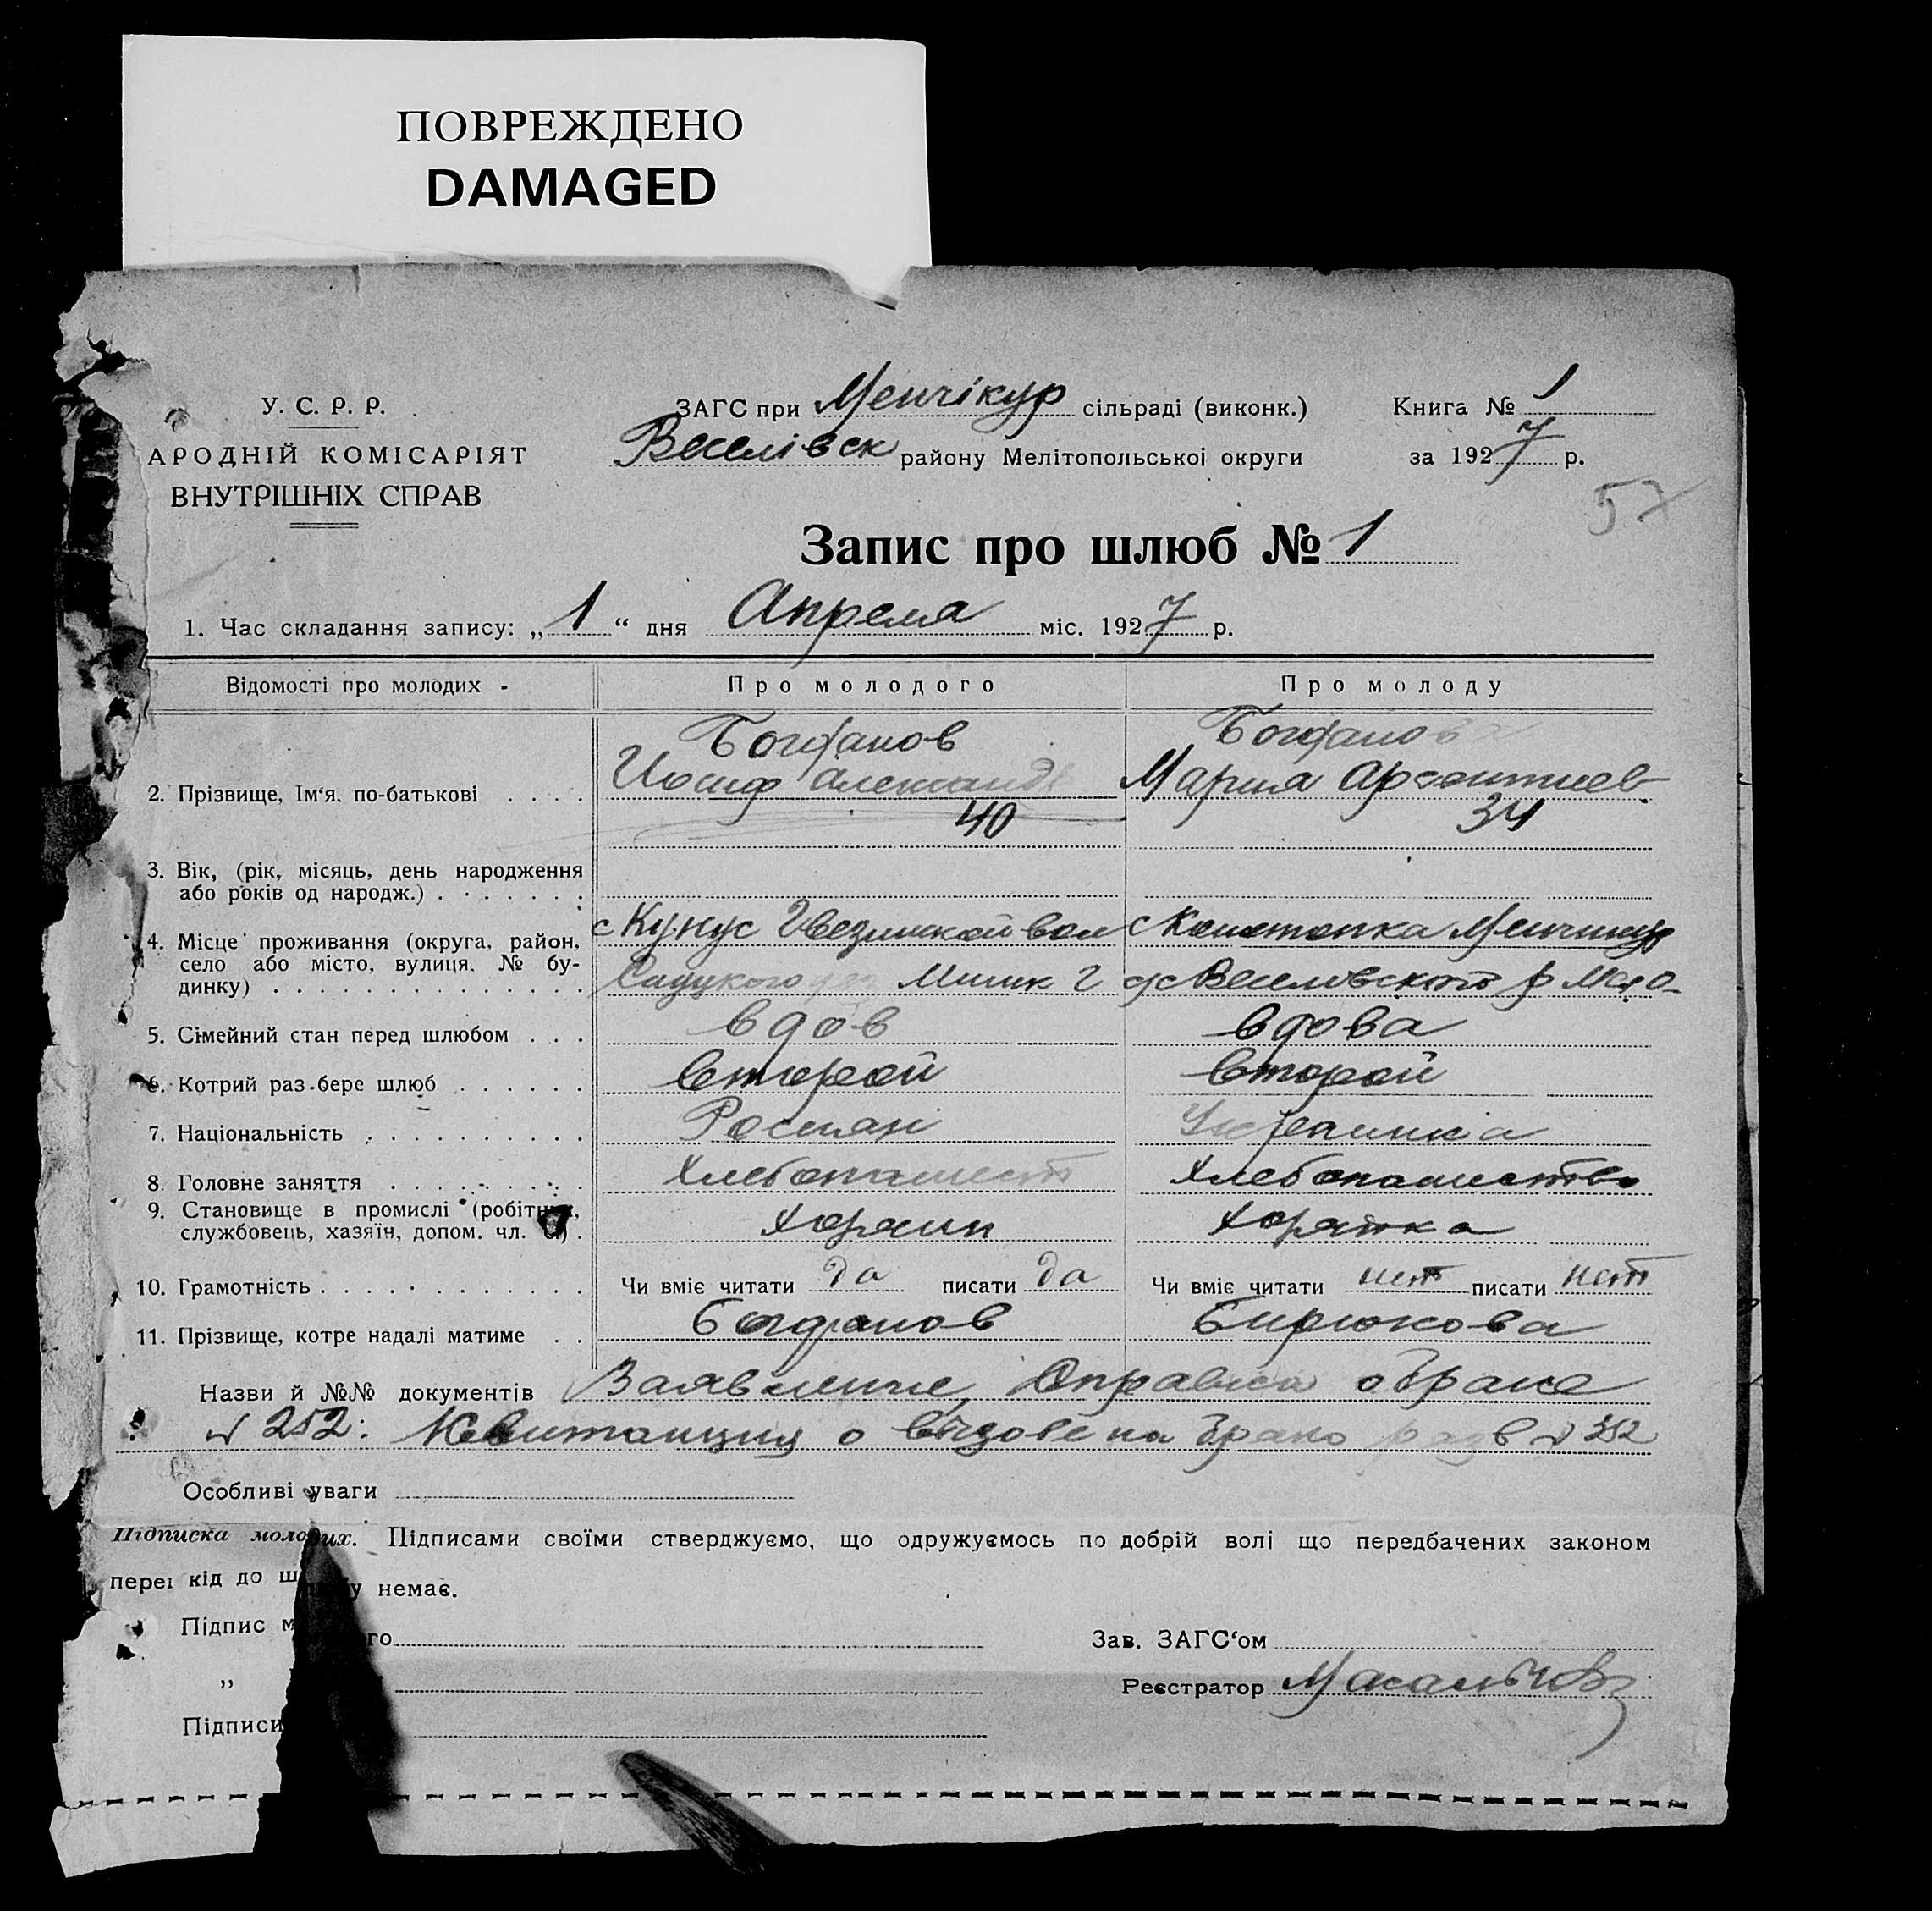 ПОВРЕЖДЕНО
DAMAGED
У. С. Р. Р.
АРОДНІЙ КОМІСАРІЯТ
ВНУТРІШНІХ СПРАВ
ЗАГС при Менчікур сільраді (виконк.)
Веселівск району Мелітопольської округи
Книга № 1
за 1927 р.
57
Запис про шлюб № 1
1. Час складання запису: „1“ дня Апреля міс. 1927 р.
Відомості про молодих - Про молодого Про молоду
Богданов Богданова
2. Прізвище, Ім‘я. по-батькові Иосиф Александ Мария Арсентиев
40 34
3. Вік, (рік, місяць, день народження
або років од народж.)
4. Місце проживання (округа, район, с Кунус вол с Менчикур
село або місто, вулиця. № бу-
динку) с/с Веселовского р
5. Сімейний стан перед шлюбом вдов вдова
6. Котрий раз бере шлюб второй второй
7. Національність Росиян Украинка
8. Головне заняття Хлебопашест Хлебопашество
9. Становище в промислі (робітник,
службовець, хазяїн, допом. чл. с.) Хозяин Хозяйка
10. Грамотність Чи вміє читати да писати да Чи вміє читати нет писати нет
11. Прізвище, котре надалі матиме Богданов Бирюкова
Назви й №№ документів Заявление, Справка о браке
№ 252: Квитанция о на брако разв № 352
Особливі уваги
Підписка молодих. Підписами своїми стверджуємо, що одружуємось по добрій волі що передбачених законом
переш кід до ш у немає.
Підпис м го
„
Підписи
Зав. ЗАГС‘ом
Реєстратор